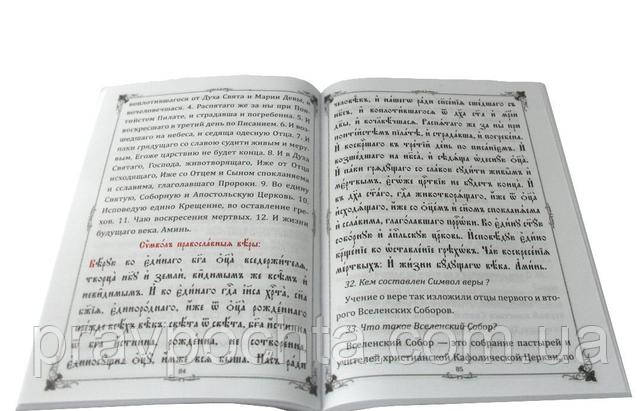 воплотившагося от Духа Свята и Марии Девы, и
вочеловечшася. 4. Распятаго же за ны при Пон-
тийстем Пилате, и страдавша и погребенна. 5. И
воскресшаго в третий день по Писанием. 6. И воз-
шедшаго на небеса, и седяща одесную Отца. 7. И
паки грядущаго со славою судити живым и мерт-
вым, Егоже царствию не будет конца. 8. И в Духа
Святаго, Господа, животворящаго, Иже от Отца
исходящаго, Иже со Отцем и Сыном спокланяема
и сславима, глаголавшаго Пророки. 9. Во едину
Святую, Соборную и Апостольскую Церковь. 10.
Исповедую едино Крещение, во оставление гре-
хов. 11. Чаю воскресения мертвых. 12. И жизни
будущаго века. Аминь.
Сѷмволъ православныѧ вѣры:
Вѣрую во единаго бга оц҃а вседержителѧ,
творца нбꙋ и земли, видимымъ же всѣмъ и
невидимымъ. И во единаго гда ииса хрта, сна
бжїѧ, единороднаго, иже ѿ оц҃а рожденнаго
прежде всѣхъ вѣкъ: свѣта ѿ свѣта, бга истинна
ѿ бга истинна, рожденна, не сотворенна,
единосущна оц҃ꙋ, имже всѧ быша. Насъ ради
84
человѣкъ, и нашегѡ ради спсенїѧ сшедшаго съ
нбсъ, и воплотившагосѧ ѿ дха ста и мрїи
двы, и вочеловѣчшасѧ. Распѧтаго же за ны при
понтїйстѣмъ пїлатѣ, и страдавша, и погребенна.
И воскресшаго въ третїй день по писанїемъ. И
возшедшаго на нбеса, и сѣдѧща ѡдеснꙋю оц҃а.
И паки грѧдꙋщаго со славою сꙋдити живымъ и
мертвымъ, егѡже црствїю не будетъ конца. И
въ дха стаго, гда, животворѧщаго, иже ѿ оц҃а
исходѧщаго, иже со оц҃емъ и сномъ спокланѧема
и сславима, глаголавшаго прⷪ҇рки. Во единꙋ стꙋю
соборнꙋю и аплскꙋю црковь. Исповѣдꙋю едино
крщенїе во ѡставленїе грѣхѡвъ. Чаю воскресенїѧ
мертвыхъ. И жизни бꙋдꙋщагѡ вѣка. Аминь.
32. Кем составлен Символ веры ?
Учение о вере так изложили отцы первого и вто-
рого Вселенских Соборов.
33. Что такое Вселенский Собор?
Вселенский Собор — это собрание пастырей и
учителей христианской Кафолической Церкви, по
85
pravpochta.com.ua